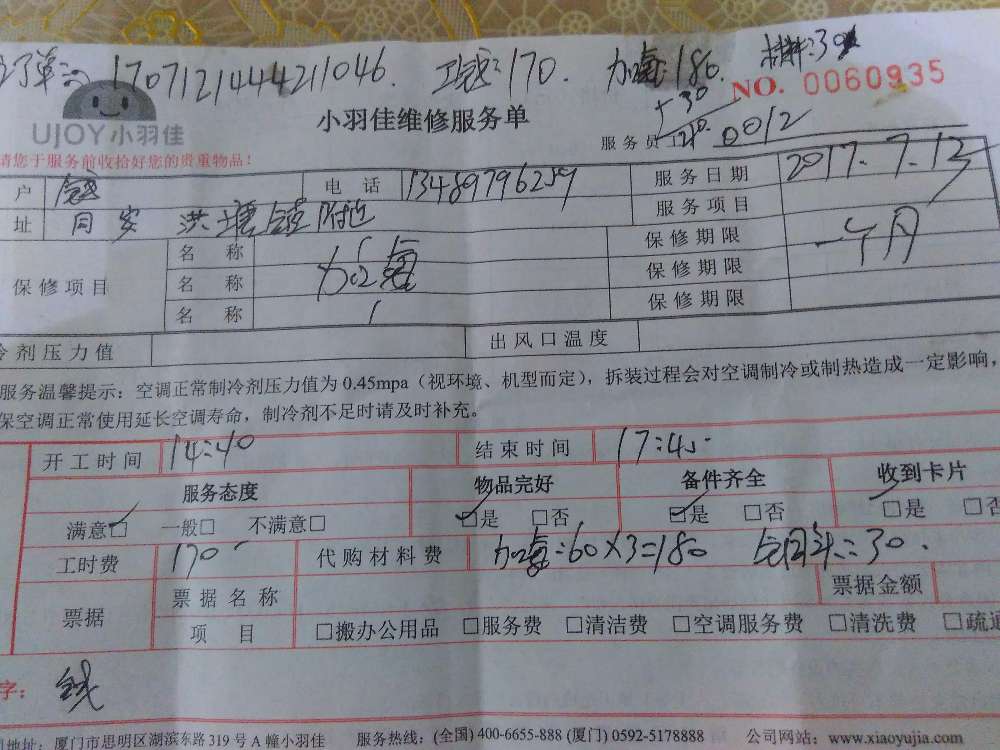 170712144421046. 工钱:170. 加氟:180 材料:30
+30
NO. 0060935
UJOY小羽佳
小羽佳维修服务单
服务员工 0012
请您于服务前收拾好您的贵重物品!
户 电话 13489796259 服务日期 2017.7.13
址 同安 洪塘镇附近 服务项目
保修项目 名称 加氟 保修期限 一个月
名称 保修期限
名称 保修期限
冷剂压力值 出风口温度
服务温馨提示:空调正常制冷剂压力值为 0.45mpa(视环境、机型而定),拆装过程会对空调制冷或制热造成一定影响,
保空调正常使用延长空调寿命,制冷剂不足时请及时补充。
开工时间 14:40 结束时间 17:45
服务态度 物品完好 备件齐全 收到卡片
满意☑ 一般□ 不满意□ ☑是 □否 ☑是 □否 ☑是 □否
工时费 170 代购材料费 加氟:60×3=180 30.
票据 票据名称 票据金额
项目 □搬办公用品 □服务费 □清洁费 □空调服务费 □清洗费 □疏通
字:
地址:厦门市思明区湖滨东路 319 号 A 幢小羽佳 服务热线:(全国) 400-6655-888 (厦门) 0592-5178888 公司网站:www.xiaoyujia.com